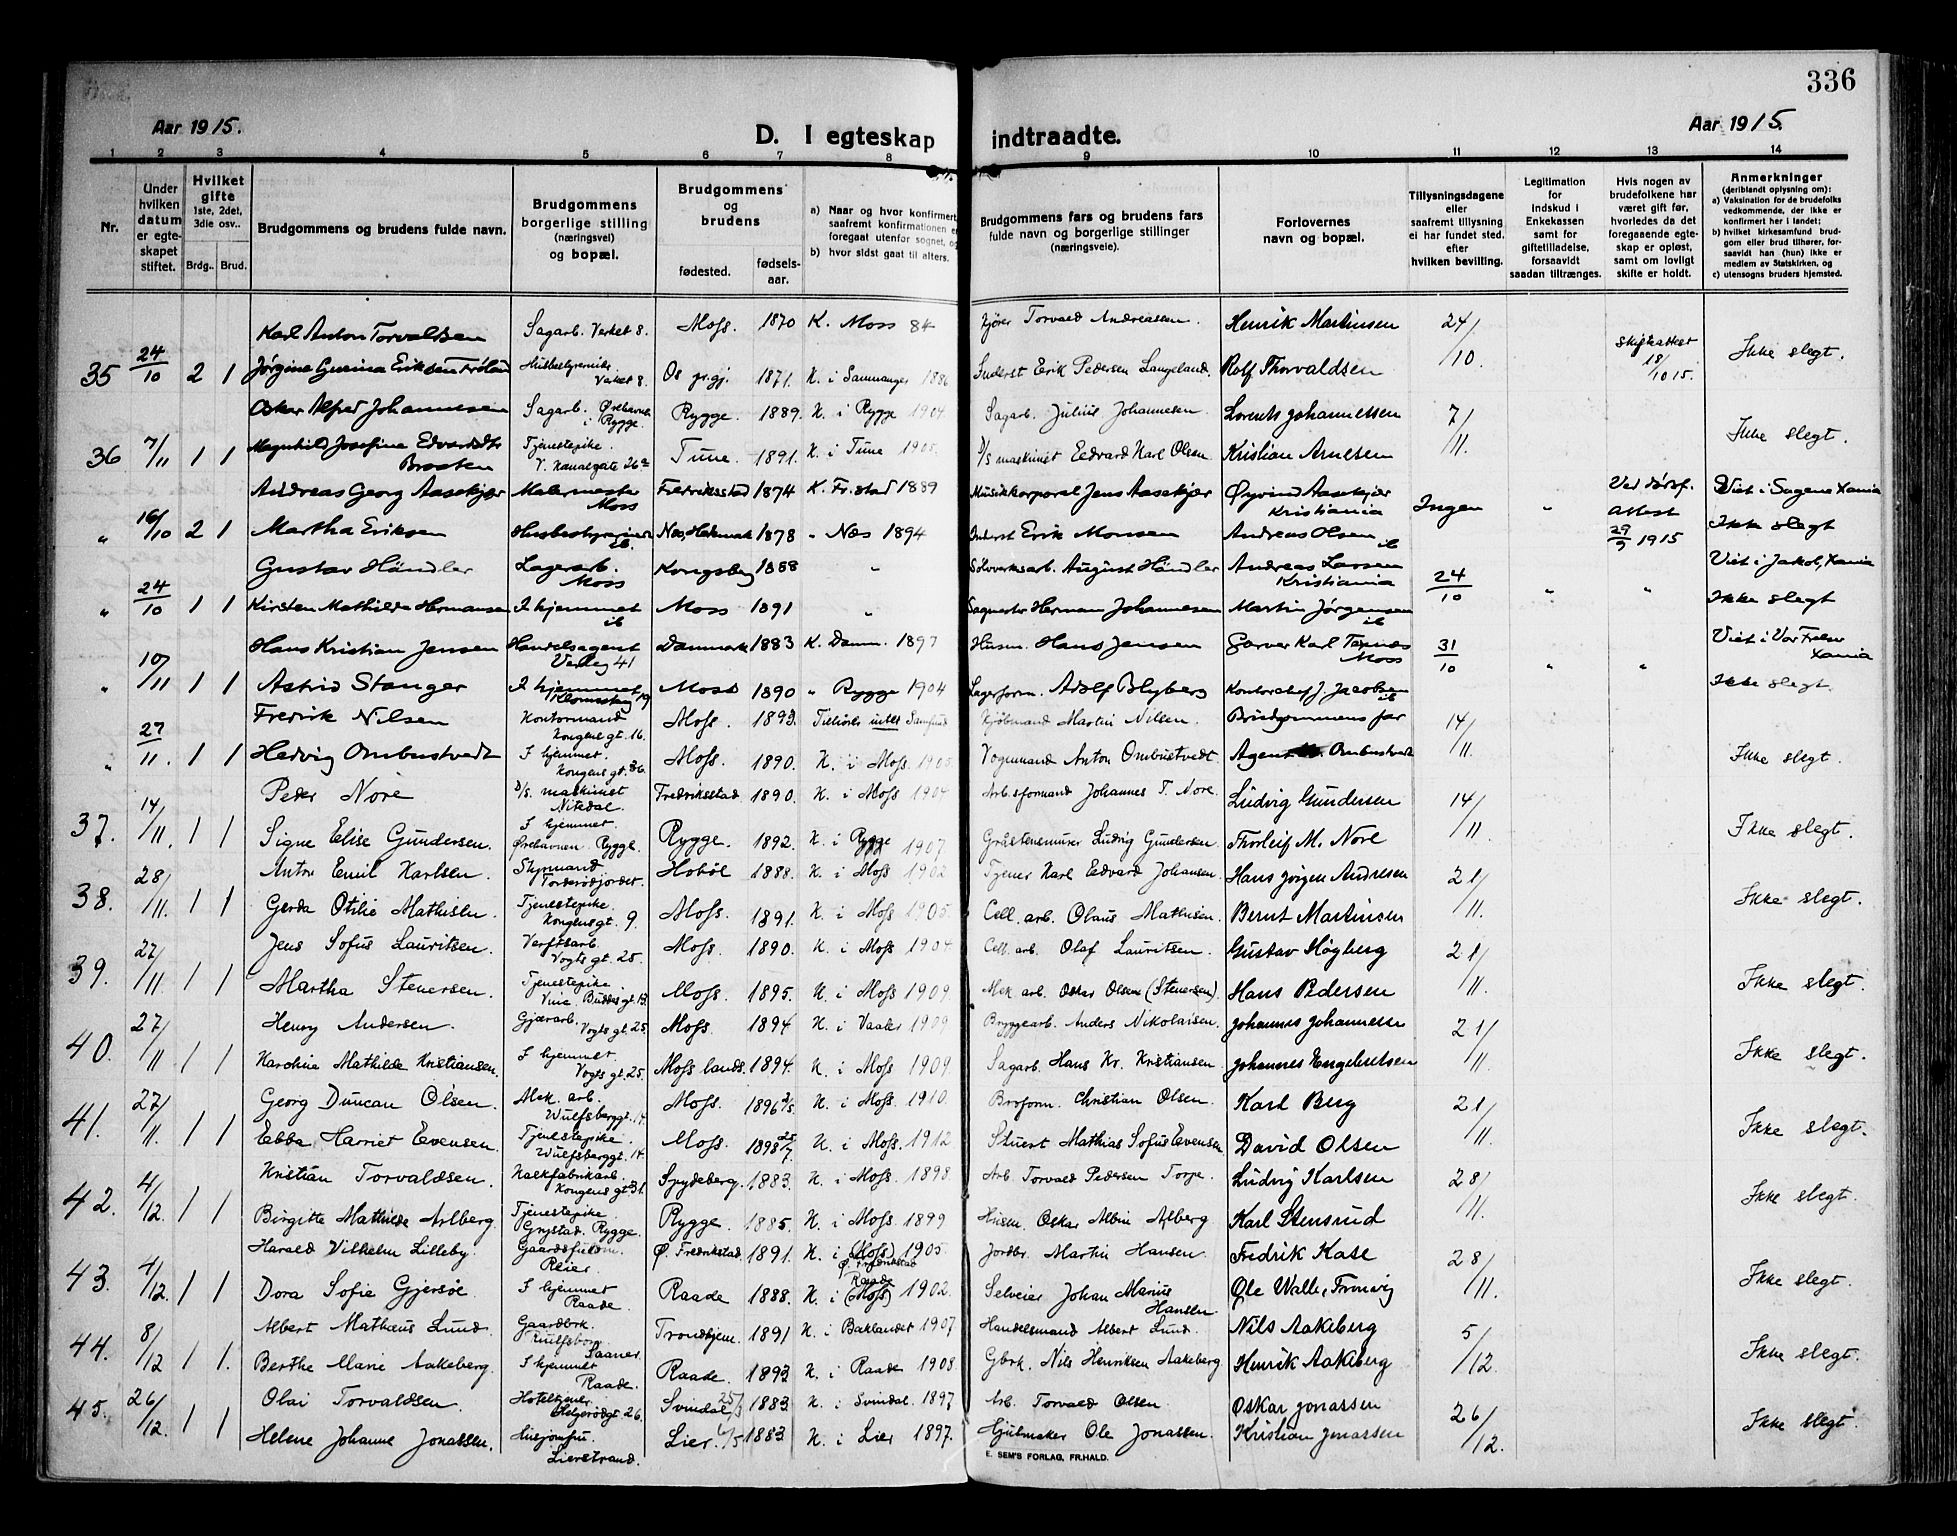 336
Aar 1915. D. I egteskap indtraadte. Aar 1915.
1 2 3 4 5 6 7 8 9 10 11 12 13 14
Nr. | Under hvilken datum er egteskapet stiftet. | Hvilket gifte 1ste, 2det, 3die osv.. Brdg.. Brud. | Brudgommens og brudens fulde navn. | Brudgommens borgerlige stilling (næringsvei) og bopæl. | Brudgommens og brudens fødested. fødsels-aar. | a) Naar og hvor konfirmert, saafremt konfirmationen er foregaat utenfor sognet, og b) hvor sidst gaat til alters. | Brudgommens fars og brudens fars fulde navn og borgerlige stillinger (næringsveie). | Forlovernes navn og bopæl. | Tillysningsdagene eller saafremt tillysning ei har fundet sted, efter hvilken bevilling. | Legitimation for indskud i Enkekassen samt for giftetilladelse, forsaavidt saadan tiltrænges. | Hvis nogen av brudefolkene har været gift før, hvorledes da det foregaaende egteskap er opløst, samt om lovligt skifte er holdt. | Anmerkninger (deriblandt oplysning om): a) Vaksination for de brudefolks vedkommende, der ikke er konfirmert her i landet; b) hvilket kirkesamfund brudgom eller brud tilhører, forsaavidt han (hun) ikke er medlem av Statskirken, og c) utensogns bruders hjemsted.
Karl Anton Torvaldsen Sagarb. Verket 8. Moss. 1870 K. Moss 84 Kjører Torvald Andreassen. Henrik Martinsen 24/10
35 24/10 2 1 Jørgine Gurina Eriksen Verket 8. Os pr.gj. 1871. K. i Samnanger 1886 Inderst Erik Pedersen Langeland. Rolf Thorvaldsen 18/10 15. Ikke slegt.
Oskar Alfred Johannesen Sagarb. i Rygge Rygge. 1889. K. i Rygge 1904 Sagarb. Julius Johannesen Lorents Johannessen 7/11
36 7/11 1 1 Magnhild Josefine Braaten Tjenestepike. V. Kanalgate 26a Tune. 1891. K. i Tune 1905. D/s maskinist Edvard Karl Olsen Kristian Arnesen Ikke slegt.
Andreas Georg Aasekjær Malermester Moss Fredriksstad 1874 K. Fr.stad 1889 Musikkorporal Jens Aasekjær Øyvind Aasekjær Kristiania Ingen " Ved dødsf. Viet i Sagene Xania
" 16/10 2 1 Martha Eriksen Husbestyrerinde ib. Nes, Hedemark 1878 " Næs 1894 Inderst Erik Monsen Andreas Olsen ib Attest 29/9 1915 Ikke slegt
Gustav Händler Lagerarb. Moss Kongsberg 1888 " Sølvverksarb. August Händler Andreas Larsen Kristiania 24/10 " " Viet i Jakob, Xania
" 24/10 1 1 Kirsten Mathilde Hermansen I hjemmet ib Moss 1891 " Sagmester Herman Johannesen Martin Jørgensen ib Ikke slegt
Hans Kristian Jensen Handelsagent Varley 41 Danmark 1883 K. Danm. 1897 Husm. Hans Jensen Garver Karl Moss 31/10 " " Viet i Vor Frelser Xania
" 10/11 1 1 Astrid Stanger I hjemmet Moss 1890 " Rygge 1904 Lagerform. Adolf Blyberg Kontorchef J. Jacobsen ib Ikke slegt.
Fredrik Nilsen Kontormand Kongens gt. 16. Moss. 1893. Tilhører intet Samfund Kjøbmand Martin Nilsen. Brudgommens far 14/11.
" 27/11. 1 1 Hedvig Ombustvedt I hjemmet. Kongens gt. 36. Moss. 1890. K. i Moss. 1905 Vognmand Anton Ombustvedt Agent Ombustvedt Ikke slegt.
Peder Nore D/s. maskinist Nitedal. Fredriksstad 1890. K. i Moss 1904 Arb.sformand Johannes T. Nore. Ludvig Gundersen 14/11
37. 14/11. 1 1 Signe Elise Gundersen. I hjemmet. Ørehavnen. Rygge Rygge. 1892. K. i Rygge 1907 Gråstensmurer Ludvig Gundersen Thorleif M. Nore Ikke slegt.
Anton Emil Karlsen. Styrmand Tordsrødjordet. Hobøl 1888. K. i Moss 1902 Tjener Karl Edvard Johansen. Hans Jørgen Andresen 21/11.
38. 28/11. 1 1 Gerda Otilie Mathisen. Tjenestepike. Kongens gt. 9. Moss. 1891. K. i Moss 1905. Cell. arb. Olaus Mathisen. Bernt Martinsen Ikke slegt.
Jens Sofus Lauritsen. Verftsarb. Vogts gt. 25. Moss. 1890. K. i Moss 1904 Cell. arb. Olaf Lauritsen. Gustav Høgberg 21/11.
39. 27/11. 1 1 Martha Stenersen. Tjenestepike. Moss. 1895. K. i Moss 1909. Mek arb. Oskar Olsen (Stenersen). Hans Pedersen Ikke slegt.
Henry Andersen. Gjærarb. Vogts gt. 25 Moss. 1894 K. i Vaaler 1909 Bryggearb. Anders Nikolaisen. Johannes Johannesen 21/11.
40. 27/11 1 1 Karoline Mathilde Kristiansen. I hjemmet Vogts gt. 25. Moss lands. 1894. K. i Moss 1909. Sagarb. Hans Kr. Kristiansen. Johannes Engebretsen Ikke slegt.
Georg Duncan Olsen. Mek. arb. Wulfsberggt. 14. Moss. 1896 K. i Moss. 1910. Broform. Christian Olsen. Karl Berg 21/11.
41. 27/11. 1 1 Ebba Harriet Evensen. Tjenestepike. Wulfsberggt. 14. Moss. 1898 K. i Moss. 1912 Stuert Mathias Sofus Evensen David Olsen Ikke slegt.
Kristian Torvaldsen. Kalkfabrikarb. Kongens gt 31. Spydeberg. 1883. K. i Moss. 1898. Arb. Torvald Pedersen Torpe. Ludvig Karlsen 28/11.
42. 4/12. 1 1 Birgitte Mathilde Arlberg. Tjenestepike. Grystad. Rygge Rygge. 1885. K. i Moss. 1899 Husm. Oskar Albin Arlberg Karl Stensrud Ikke slegt.
Harald Vilhelm Lilleby. Reier. Ø. Fredrikstad. 1891. K. i (Moss) 1905 Ø. Fredrikstad Jordbr. Martin Hansen. Fredrik Kase 28/11.
43. 4/12. 1 1 Dora Sofie Gjersøe. I hjemmet Raade. Raade 1888. K. i (Moss) Raade 1902. Selveier Johan Marius Hansen Ole Walle, Tronvig Ikke slegt.
Albert Mathæus Lund. Gaardbrk. Saaner. Trondhjem. 1891 K. i Baklandet 1907 Handelsmand Albert Lund. Nils Aakeberg 5/12.
44. 8/12 1 1. Berthe Marie Aakeberg. I hjemmet Raade. Raade. 1893 K. i Raade 1908. Gbrk. Nils Henriksen Aakeberg Henrik Aakeberg Ikke slegt.
Olai Torvaldsen. Hoteltjener Helgerødgt 26. Svindal 25/3 1883. K. i Svindal. 1897 Arb. Torvald Olsen. Oskar Jonassen 26/12.
45. 26/12. 1 1 Helene Johanne Jonassen. Husjomfru. Lierstrand. Lier. 6/5 1883. K. i Lier 1897. Hjulmaker Ole Jonassen. Kristian Jonassen Ikke slegt.
E. SEM'S FORLAG, FR.HALD.